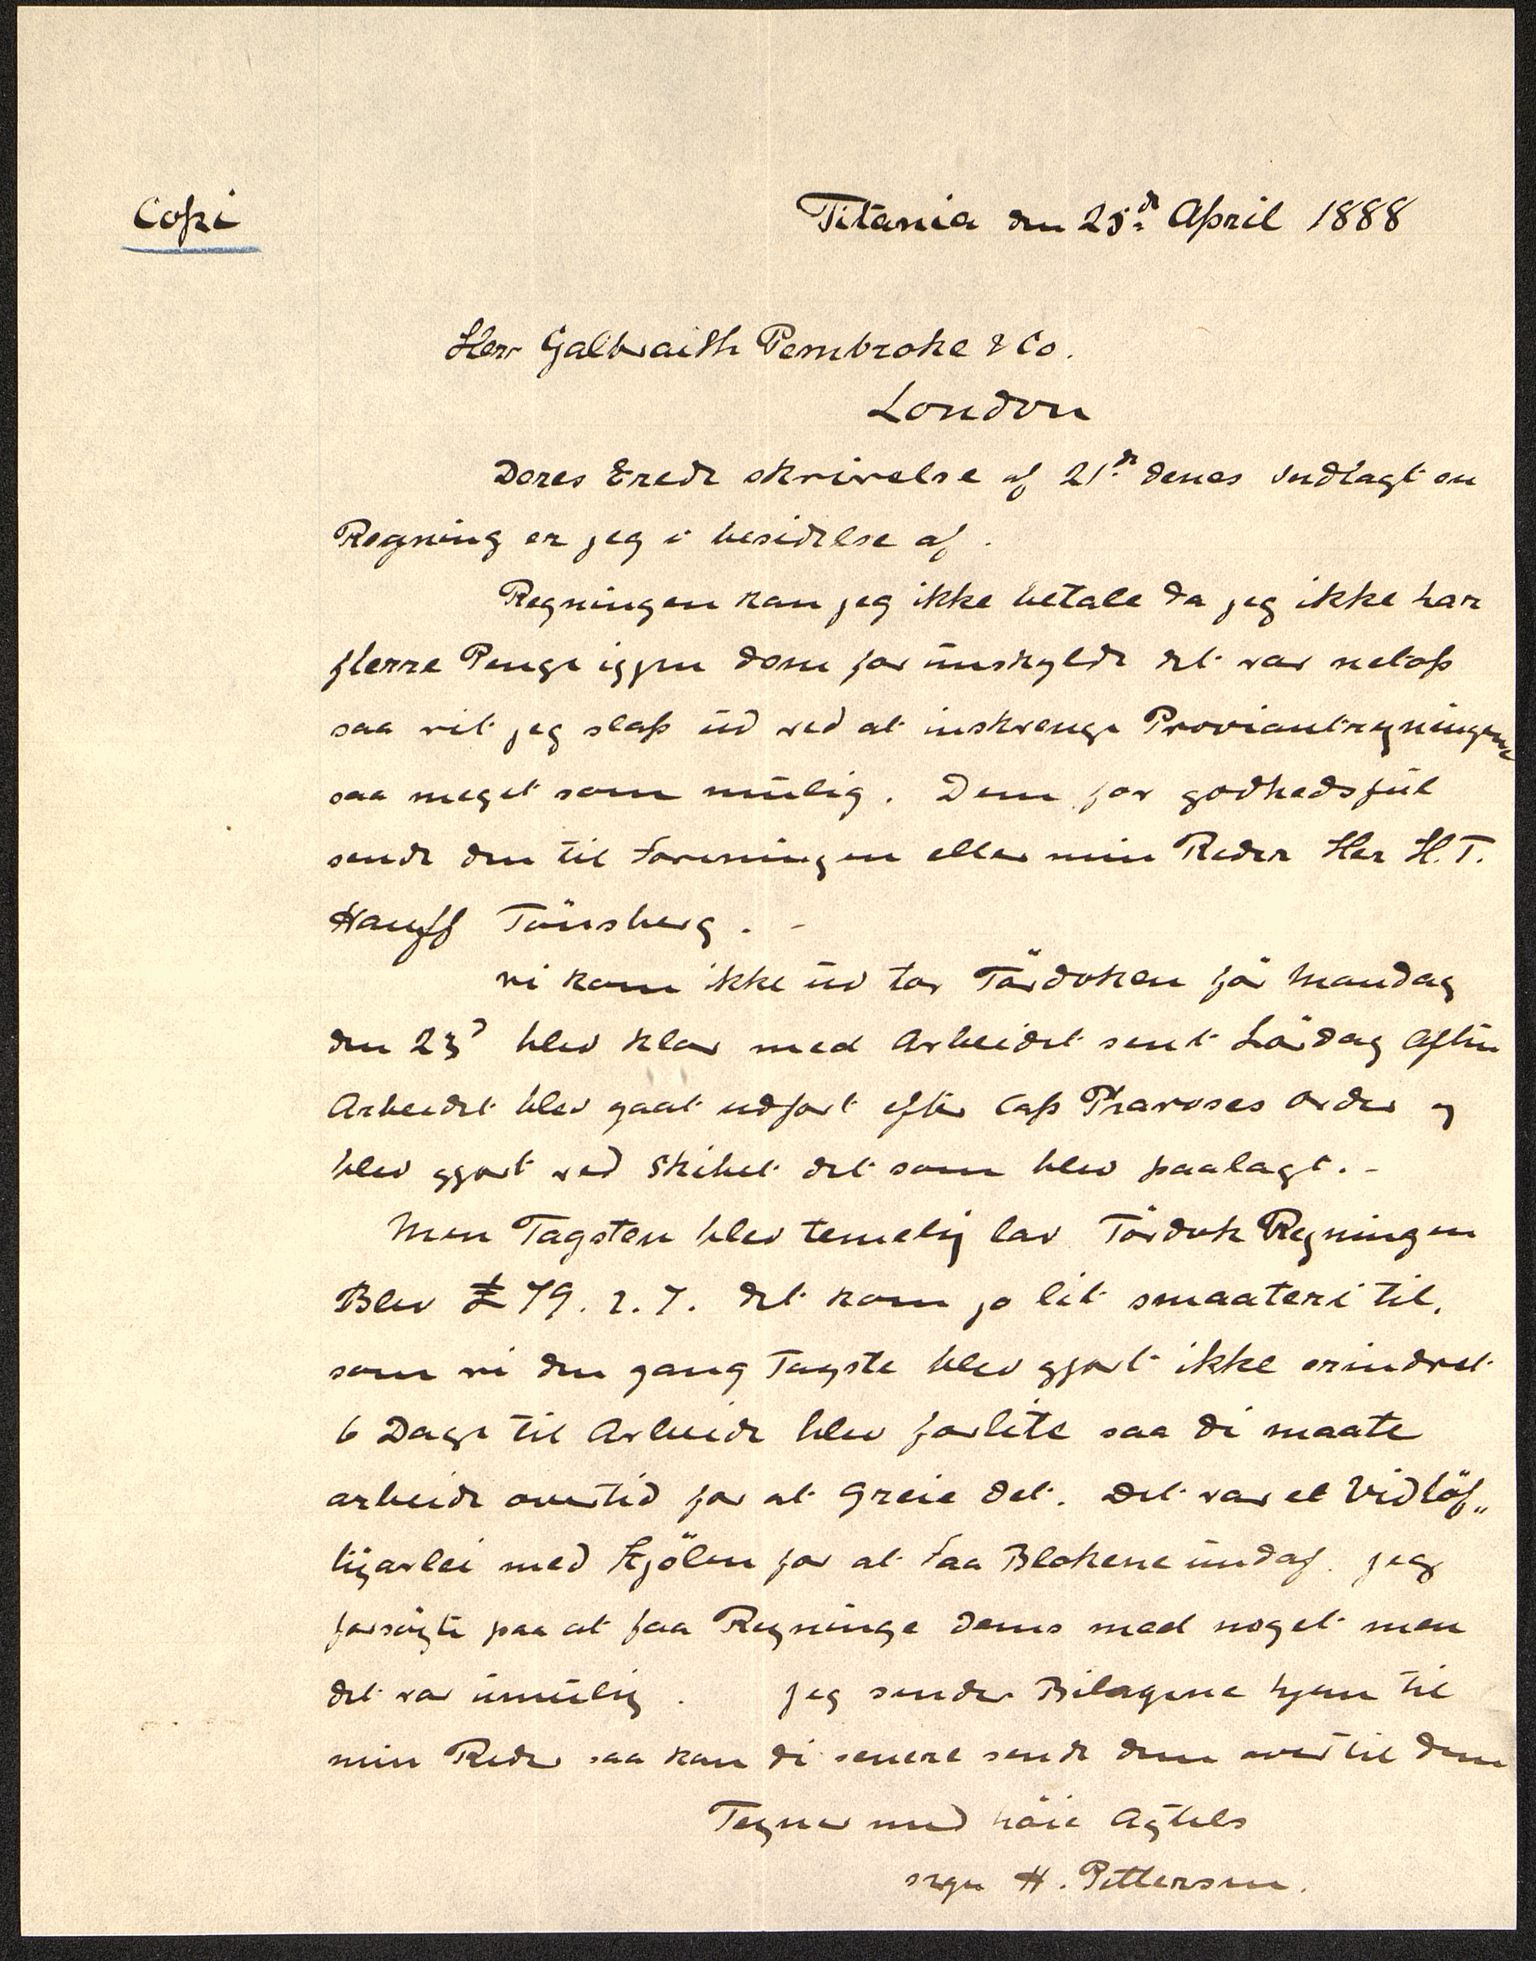 Copi
Titania den 25de April 1888
Herr Galbraith Pembroke & Co.
London
Deres Erede skrivelse af 21de denes indlagt en
Regning er jeg i besidelse af.
Regningen kan jeg ikke betale da jeg ikke har
flerre Penge iggen dom for ünskylde det var netop
saa vit jeg slap üd ved at inskrenge Proviantregningene
saa meget som mülig. Dem for godhedsfül
sende den til Foreningen eller min Reder Her H. T.
Hauff Tönsberg. -
vi kom ikke üd tor Tördoken för Mandag
den 23d blev klar med Arbeidet sent Lördag Aften
Arbeidet blev gaat udfort efter Cap Pharoses Order og
blev gjort ved Skibet det som blev paalagt. -
Men Tagsten blev temelig lav Tördok Regningen
Blev £ 79. 2. 7. det kom jo lit smaateri til,
som vi den gang Tagste blev gjort ikke erindret
6 Dage til Arbeide blev forlite saa di maate
arbeide overtid for at Greie det. Det var et Vidlöf„
tigarbei med Kjölen for at faa Blokene ündaf. jeg
forsögte paa at faa Regninge dems med noget men
det var ümülig. jeg sender Bilagene hjem til
min Reder saa kan di senere sende dem over til dem
Tegner med höie Agtels
sign H. Pettersen.